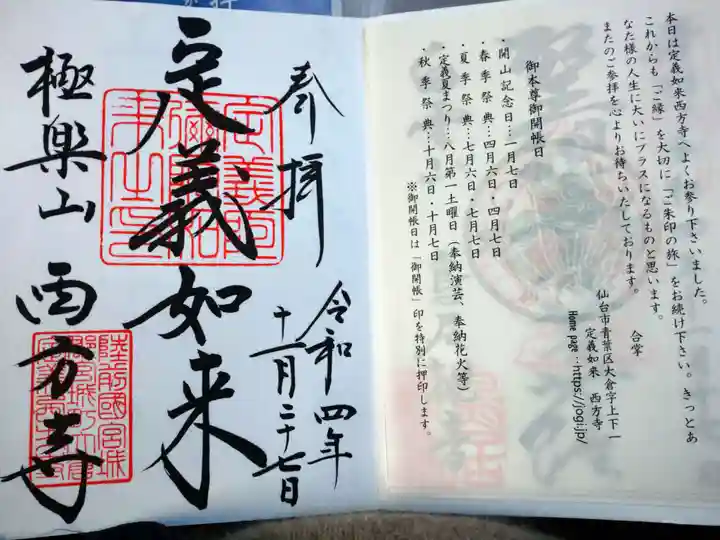 本日は定義如来西方寺へよくお参り下さいました。
これからも「ご縁」を大切に「ご朱印の旅」をお続け下さい。きっとあ
なた様の人生に大いにプラスになるものと思います。
またのご参拝を心よりお待ちいたしております。
合掌
仙台市青葉区大倉字上下一
定義如来 西方寺
Home page : https://jogi.jp/
御本尊御開帳日
・開山記念日…一月七日
・春季祭典…四月六日・四月七日
・夏季祭典…七月六日・七月七日
・定義夏まつり…八月第一土曜日(奉納演芸、奉納花火等)
・秋季祭典…十月六日・十月七日
※御開帳日は「御開帳」印を特別に押印します。
奉拝
令和四年
十一月二十七日
定義如来
極楽山 西方寺